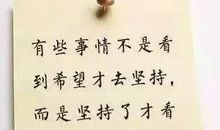 有些事情不是看
到希望才去坚持，
而是坚持了才看